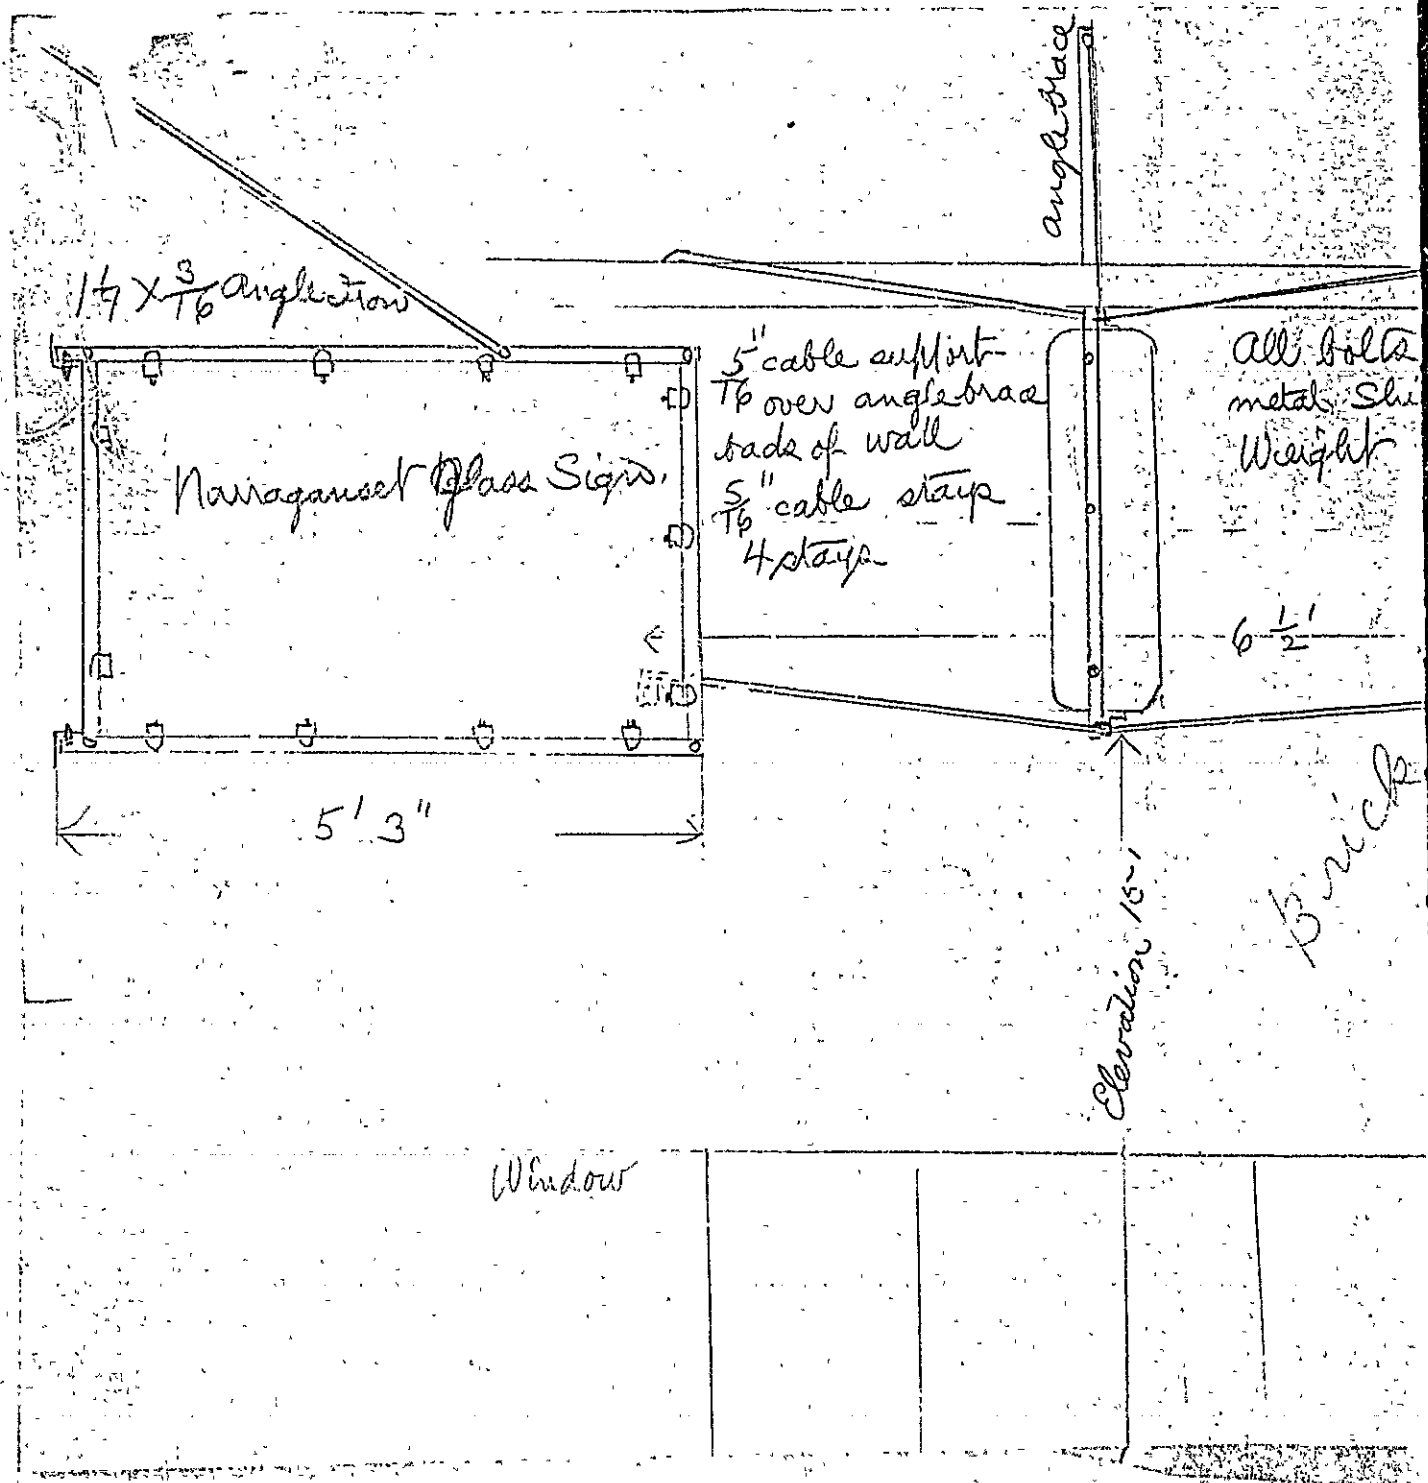 angle brace
1 1/4 X 3/16 angle iron
Narraganset Glass Sign.
5/16" cable support
over angle brace
of wall
5/16" cable stays
4 stays
All bolts
metal
Weight
6 1/2'
5' 3"
Elevation 15'
Brick
Window